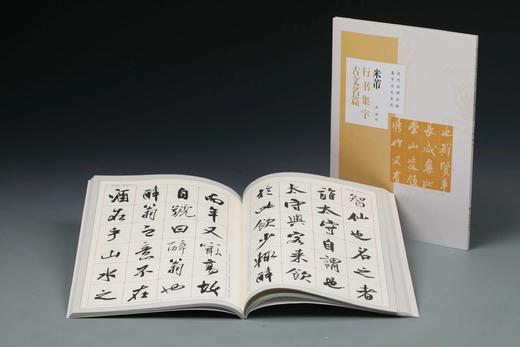 米芾
行书集字
古文名篇
也群賢畢
長咸集此
崇山峻領
脩竹又有
智仙也名之者
誰太守自謂也
太守與客來飲
於此飲少輒醉
而年又最高故
自號曰醉翁也
醉翁之意不在
酒在乎山水之